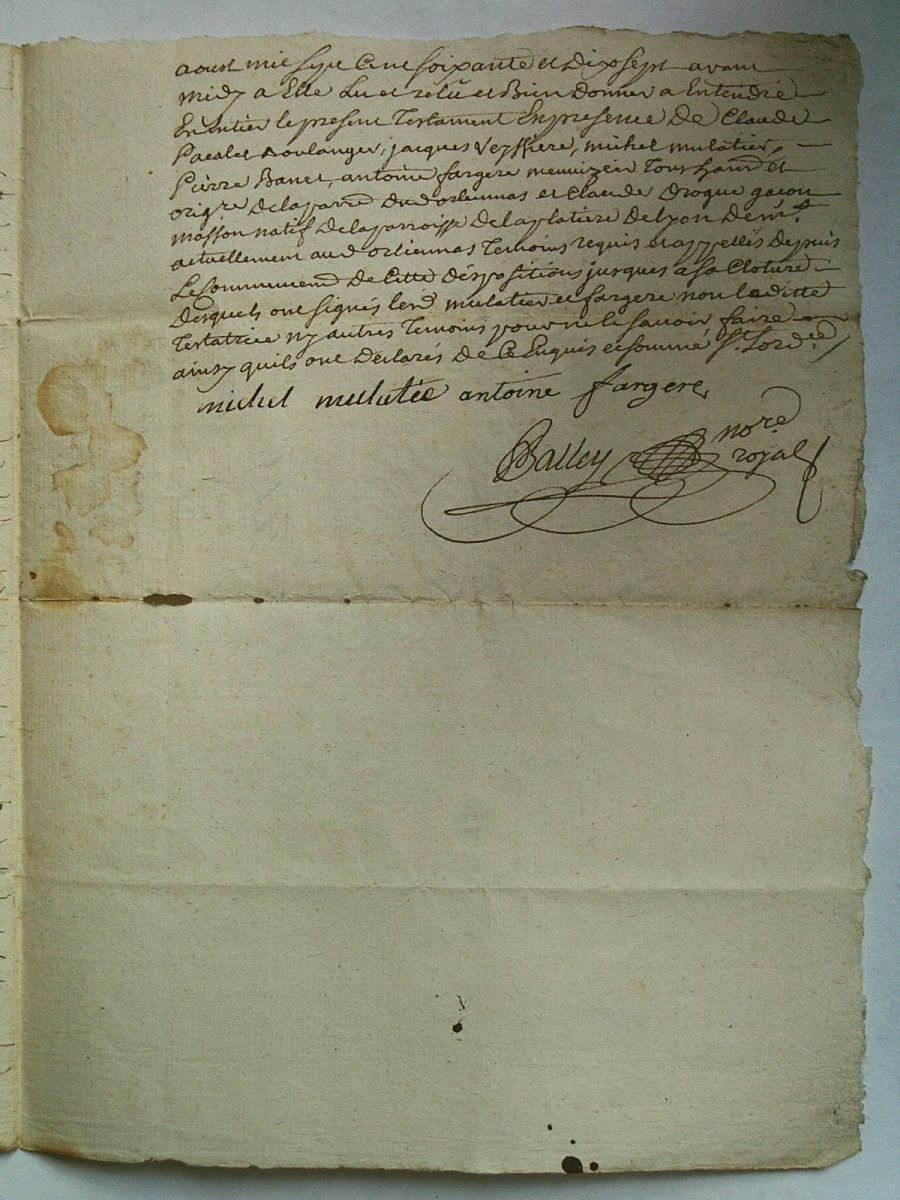 aoust mil sept Cent soixante et Dixsept avant
midy a Elle Lu et relu et Bien Donner a Entendre
En entier le present Testament En presence De Claude
Pacalet Boulanger, jacques Veyssiere, michel mulatier,
Pierre Banet, antoine fargere menuizier Tous hants et
orig.re Delaparre Dud orliennas et Claude Drogue garçon
masson natif Delaparroisse Delaplatiere De lyon Dem.t
actuellement aud orliennas Temoins requis et appellés Depuis
Le Commencemt De Cette Disposition jusques a sa Cloture
Desquels ont signés lesd mulatier et fargere non laditte
Testatrice ny autres Temoins pour ne le savoir faire
ainsy quils ont Declarés De Ce Enquis et sommé St Lord.ce
michel mulatie antoine fargere
Balley no.re
royal